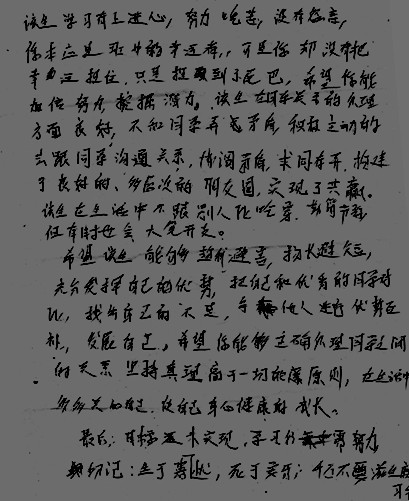 该生学习有上进心，努力吃苦，没有怨言，
你本应是班中的幸运者，可是你却没有把
幸运抓住，只是抓到了尾巴，希望你能
加倍努力挖掘潜力。该生在同学关系的处理
方面良好，不和同学弄矛盾，积极主动的
去跟同学沟通关系，协调矛盾，求同存异，构建
了良好的、多层次的朋友圈，实现了共赢。
该生在生活中不跟别人比吃穿，节
但有时也会大笔开支。
希望该生能够趋利避害，扬长避短，
充分发挥自己的优势，把自己和优秀的同学对
比，找出自己的不足，与他人进行优势互
补，发展自己，希望你能够正确处理同学之间
的关系，坚持真理高于一切的原则，在生活中
多多关心自己，使自己身心健康的成长。
最后：目标还未实现，学习仍需努力
期切记：生于忧患，死于安乐；千万不要满足